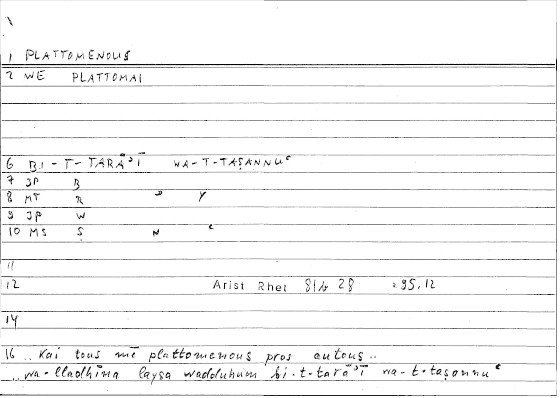 1 PLATTOMENOUS
2 WE PLATTOMAI
6 BI-T-TARĀʾĪ WA-T-TAṢANNUʿ
7 JP B
8 MT R ʾ Y
9 JP W
10 MS Ṣ N ʿ
11
12 Arist Rhet 81b 28 = 95,12
14
16 ..kai tous mē plattomenous pros autous..
..wa-lladhīna laysa wadduhum bi-t-tarāʾī wa-t-taṣannuʿ